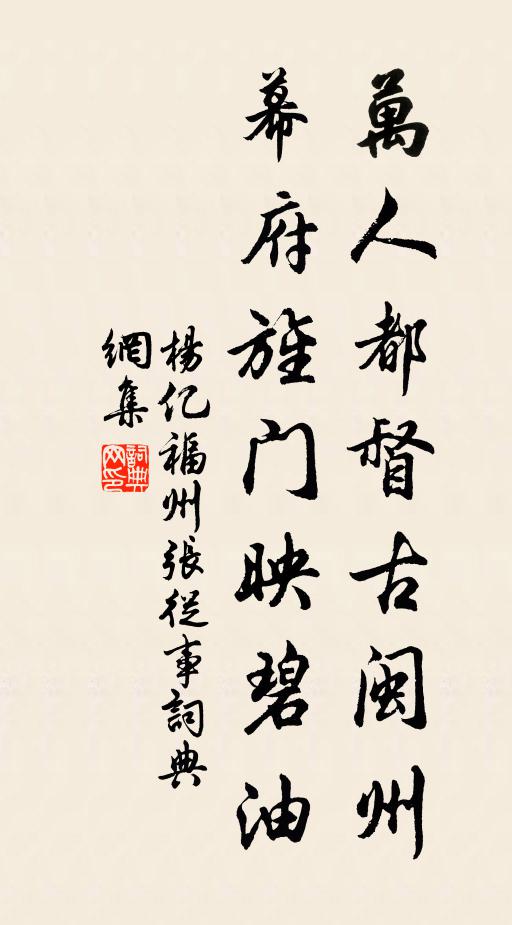 萬人都督古闽州
幕府旌门映碧油
楊亿福州張從事詞典
網集
詞典
网印